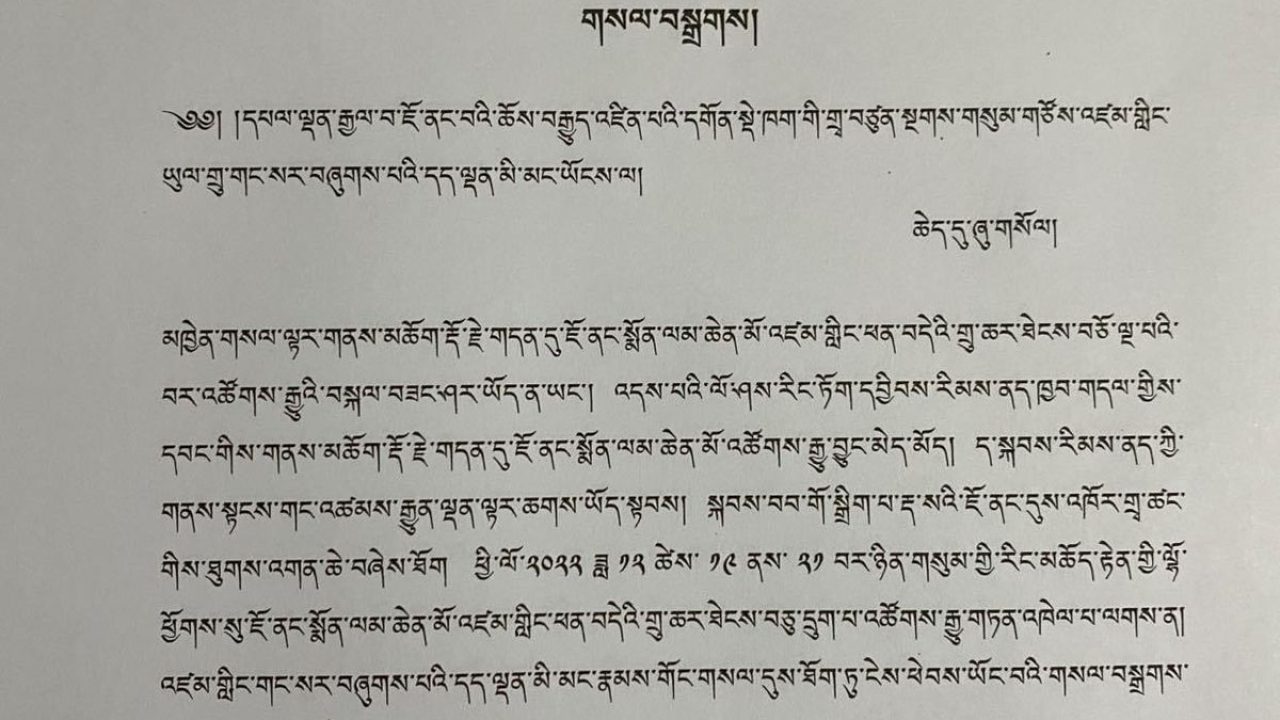 གསལ་བསྒྲགས།
༄༅། །དཔལ་ལྡན་རྒྱལ་བ་ཇོ་ནང་བའི་ཆོས་བརྒྱུད་འཛིན་པའི་དགོན་སྡེ་ཁག་གི་གྲྭ་བཙུན་སྔགས་གསུམ་གཙོས་འཛམ་གླིང་
ཡུལ་གྲུ་གང་སར་བཞུགས་པའི་དད་ལྡན་མི་མང་ཡོངས་ལ།
ཆེད་དུ་ཞུ་གསོལ།
མཁྱེན་གསལ་ལྟར་གནས་མཆོག་རྡོ་རྗེ་གདན་དུ་ཇོ་ནང་སྨོན་ལམ་ཆེན་མོ་འཛམ་གླིང་ཕན་བདེའི་གྲུ་ཆར་ཐེངས་བཅོ་ལྔ་པའི་
བར་འཚོགས་རྒྱུའི་བསྐལ་བཟང་ཤར་ཡོད་ན་ཡང་། འདས་པའི་ལོ་ཤས་རིང་ཏོག་དབྱིབས་རིམས་ནད་ཁྱབ་གདལ་གྱིས་
དབང་གིས་གནས་མཆོག་རྡོ་རྗེ་གདན་དུ་ཇོ་ནང་སྨོན་ལམ་ཆེན་མོ་འཚོགས་རྒྱུ་བྱུང་མེད་མོད། ད་སྐབས་རིམས་ནད་ཀྱི་
གནས་སྟངས་གང་འཚམས་རྒྱུན་ལྡན་ལྟར་ཆགས་ཡོད་སྟབས། སྐབས་བབ་གོ་སྒྲིག་པ་རྡ་སའི་ཇོ་ནང་དུས་འཁོར་གྲྭ་ཚང་
གིས་ཐུགས་འགན་ཆེ་བཞེས་ཐོག ཕྱི་ལོ་༢༠༢༢ ཟླ་ ༡༢ ཚེས་ ༡༩ ནས་ ༢༡ བར་ཉིན་གསུམ་གྱི་རིང་མཆོད་རྟེན་གྱི་ལྷོ་
ཕྱོགས་སུ་ཇོ་ནང་སྨོན་ལམ་ཆེན་མོ་འཛམ་གླིང་ཕན་བདེའི་གྲུ་ཆར་ཐེངས་བཅུ་དྲུག་པ་འཚོགས་རྒྱུ་གཏན་འཁེལ་པ་ལགས་ན།
འཛམ་གླིང་གང་སར་བཞུགས་པའི་དད་ལྡན་མི་མང་རྣམས་གོང་གསལ་དུས་ཐོག་ཏུ་ངེས་ཕེབས་ཡོང་བའི་གསལ་བསྒྲགས་